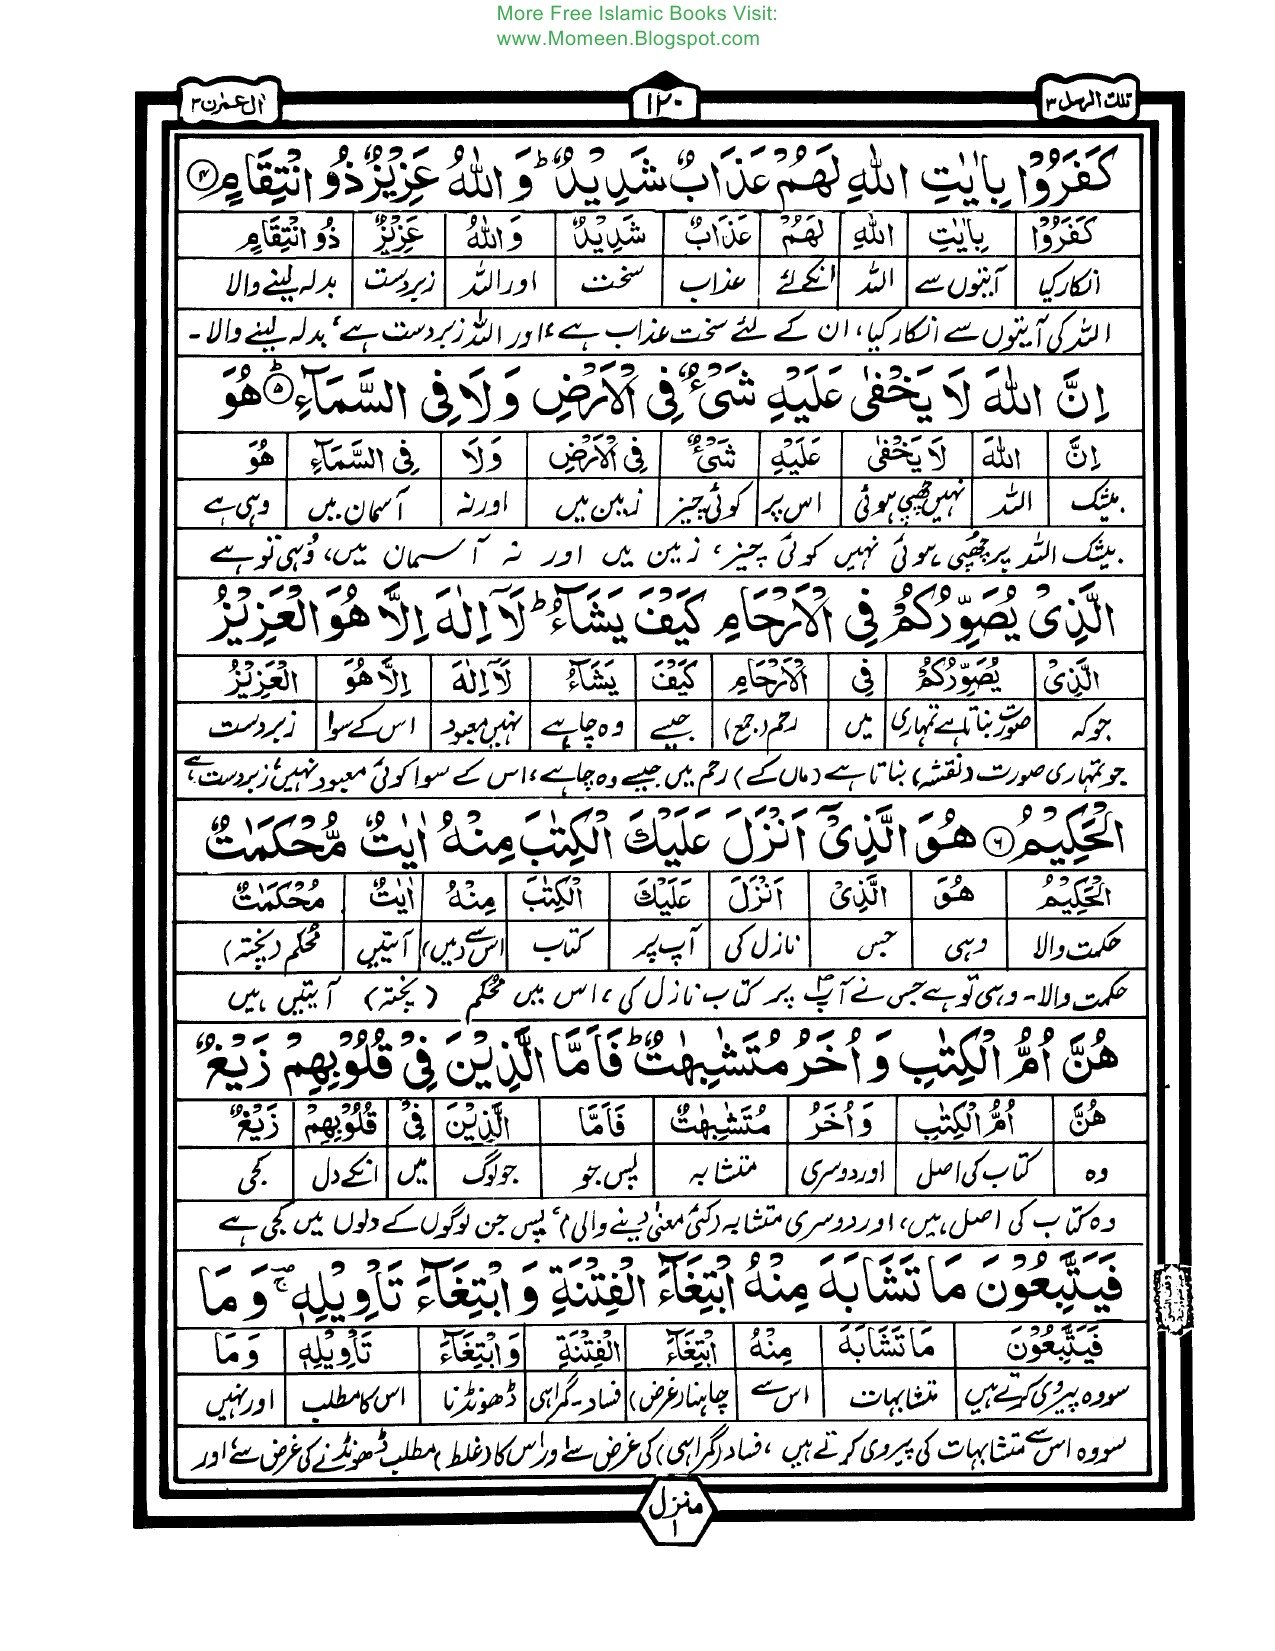 More Free Islamic Books Visit:
www.Momeen.Blogspot.com
تلك الرسل ۳
۱۲۰
اٰل عمرٰن ۳
كَفَرُوْا بِاٰيٰتِ اللّٰهِ لَهُمْ عَذَابٌ شَدِيْدٌ ؕ وَ اللّٰهُ عَزِيْزٌ ذُو انْتِقَامٍ ۴
كَفَرُوْا بِاٰيٰتِ اللّٰهِ لَهُمْ عَذَابٌ شَدِيْدٌ وَ اللّٰهُ عَزِيْزٌ ذُو انْتِقَامٍ
انکار کیا آیتوں سے اللہ انکے لئے عذاب سخت اور اللہ زبردست بدلہ لینے والا
اللہ کی آیتوں سے انکار کیا، ان کے لئے سخت عذاب ہے، اور اللہ زبردست ہے، بدلہ لینے والا۔
اِنَّ اللّٰهَ لَا يَخْفٰى عَلَيْهِ شَيْءٌ فِى الْاَرْضِ وَلَا فِى السَّمَآءِ ؕ ۵ هُوَ
اِنَّ اللّٰهَ لَا يَخْفٰى عَلَيْهِ شَيْءٌ فِى الْاَرْضِ وَلَا فِى السَّمَآءِ هُوَ
بیشک اللہ نہیں چھپی ہوئی اس پر کوئی چیز زمین میں اور نہ آسمان میں وہی ہے
بیشک اللہ پر چھپی ہوئی نہیں کوئی چیز، زمین میں اور نہ آسمان میں، وُہی تو ہے
الَّذِىْ يُصَوِّرُكُمْ فِى الْاَرْحَامِ كَيْفَ يَشَآءُ ؕ لَاۤ اِلٰهَ اِلَّا هُوَ الْعَزِيْزُ
الَّذِىْ يُصَوِّرُكُمْ فِى الْاَرْحَامِ كَيْفَ يَشَآءُ لَاۤ اِلٰهَ اِلَّا هُوَ الْعَزِيْزُ
جو کہ صورت بناتا ہے تمہاری میں رحم (جمع) جیسے وہ چاہے نہیں معبود اس کے سوا زبردست
جو تمہاری صورت (نقشہ) بناتا ہے (ماں کے) رحم میں جیسے وہ چاہے، اس کے سوا کوئی معبود نہیں، زبردست ہے
الْحَكِيْمُ ۶ هُوَ الَّذِىْۤ اَنْزَلَ عَلَيْكَ الْكِتٰبَ مِنْهُ اٰيٰتٌ مُّحْكَمٰتٌ
الْحَكِيْمُ هُوَ الَّذِىْۤ اَنْزَلَ عَلَيْكَ الْكِتٰبَ مِنْهُ اٰيٰتٌ مُحْكَمٰتٌ
حکمت والا وہی جس نازل کی آپ پر کتاب اس سے (میں) آیتیں محکم (پختہ)
حکمت والا۔ وہی تو ہے جس نے آپؐ پر کتاب نازل کی، اس میں محکم (پختہ) آیتیں ہیں
هُنَّ اُمُّ الْكِتٰبِ وَ اُخَرُ مُتَشٰبِهٰتٌ ؕ فَاَمَّا الَّذِيْنَ فِىْ قُلُوْبِهِمْ زَيْغٌ
هُنَّ اُمُّ الْكِتٰبِ وَ اُخَرُ مُتَشٰبِهٰتٌ فَاَمَّا الَّذِيْنَ فِىْ قُلُوْبِهِمْ زَيْغٌ
وہ کتاب کی اصل اور دوسری متشابہ پس جو جو لوگ میں انکے دل کجی
وہ کتاب کی اصل ہیں، اور دوسری متشابہ (کئی معنیٰ دینے والی)، پس جن لوگوں کے دلوں میں کجی ہے
فَيَتَّبِعُوْنَ مَا تَشَابَهَ مِنْهُ ابْتِغَآءَ الْفِتْنَةِ وَ ابْتِغَآءَ تَاْوِيْلِهٖ ۚ وَ مَا
فَيَتَّبِعُوْنَ مَا تَشَابَهَ مِنْهُ ابْتِغَآءَ الْفِتْنَةِ وَ ابْتِغَآءَ تَاْوِيْلِهٖ وَ مَا
سو وہ پیروی کرتے ہیں متشابہات اس سے چاہنا (غرض) فساد۔گمراہی ڈھونڈنا اس کا مطلب اور نہیں
سو وہ اس سے متشابہات کی پیروی کرتے ہیں، فساد (گمراہی) کی غرض سے اور اس کا (غلط) مطلب ڈھونڈنے کی غرض سے، اور
منزل
۱